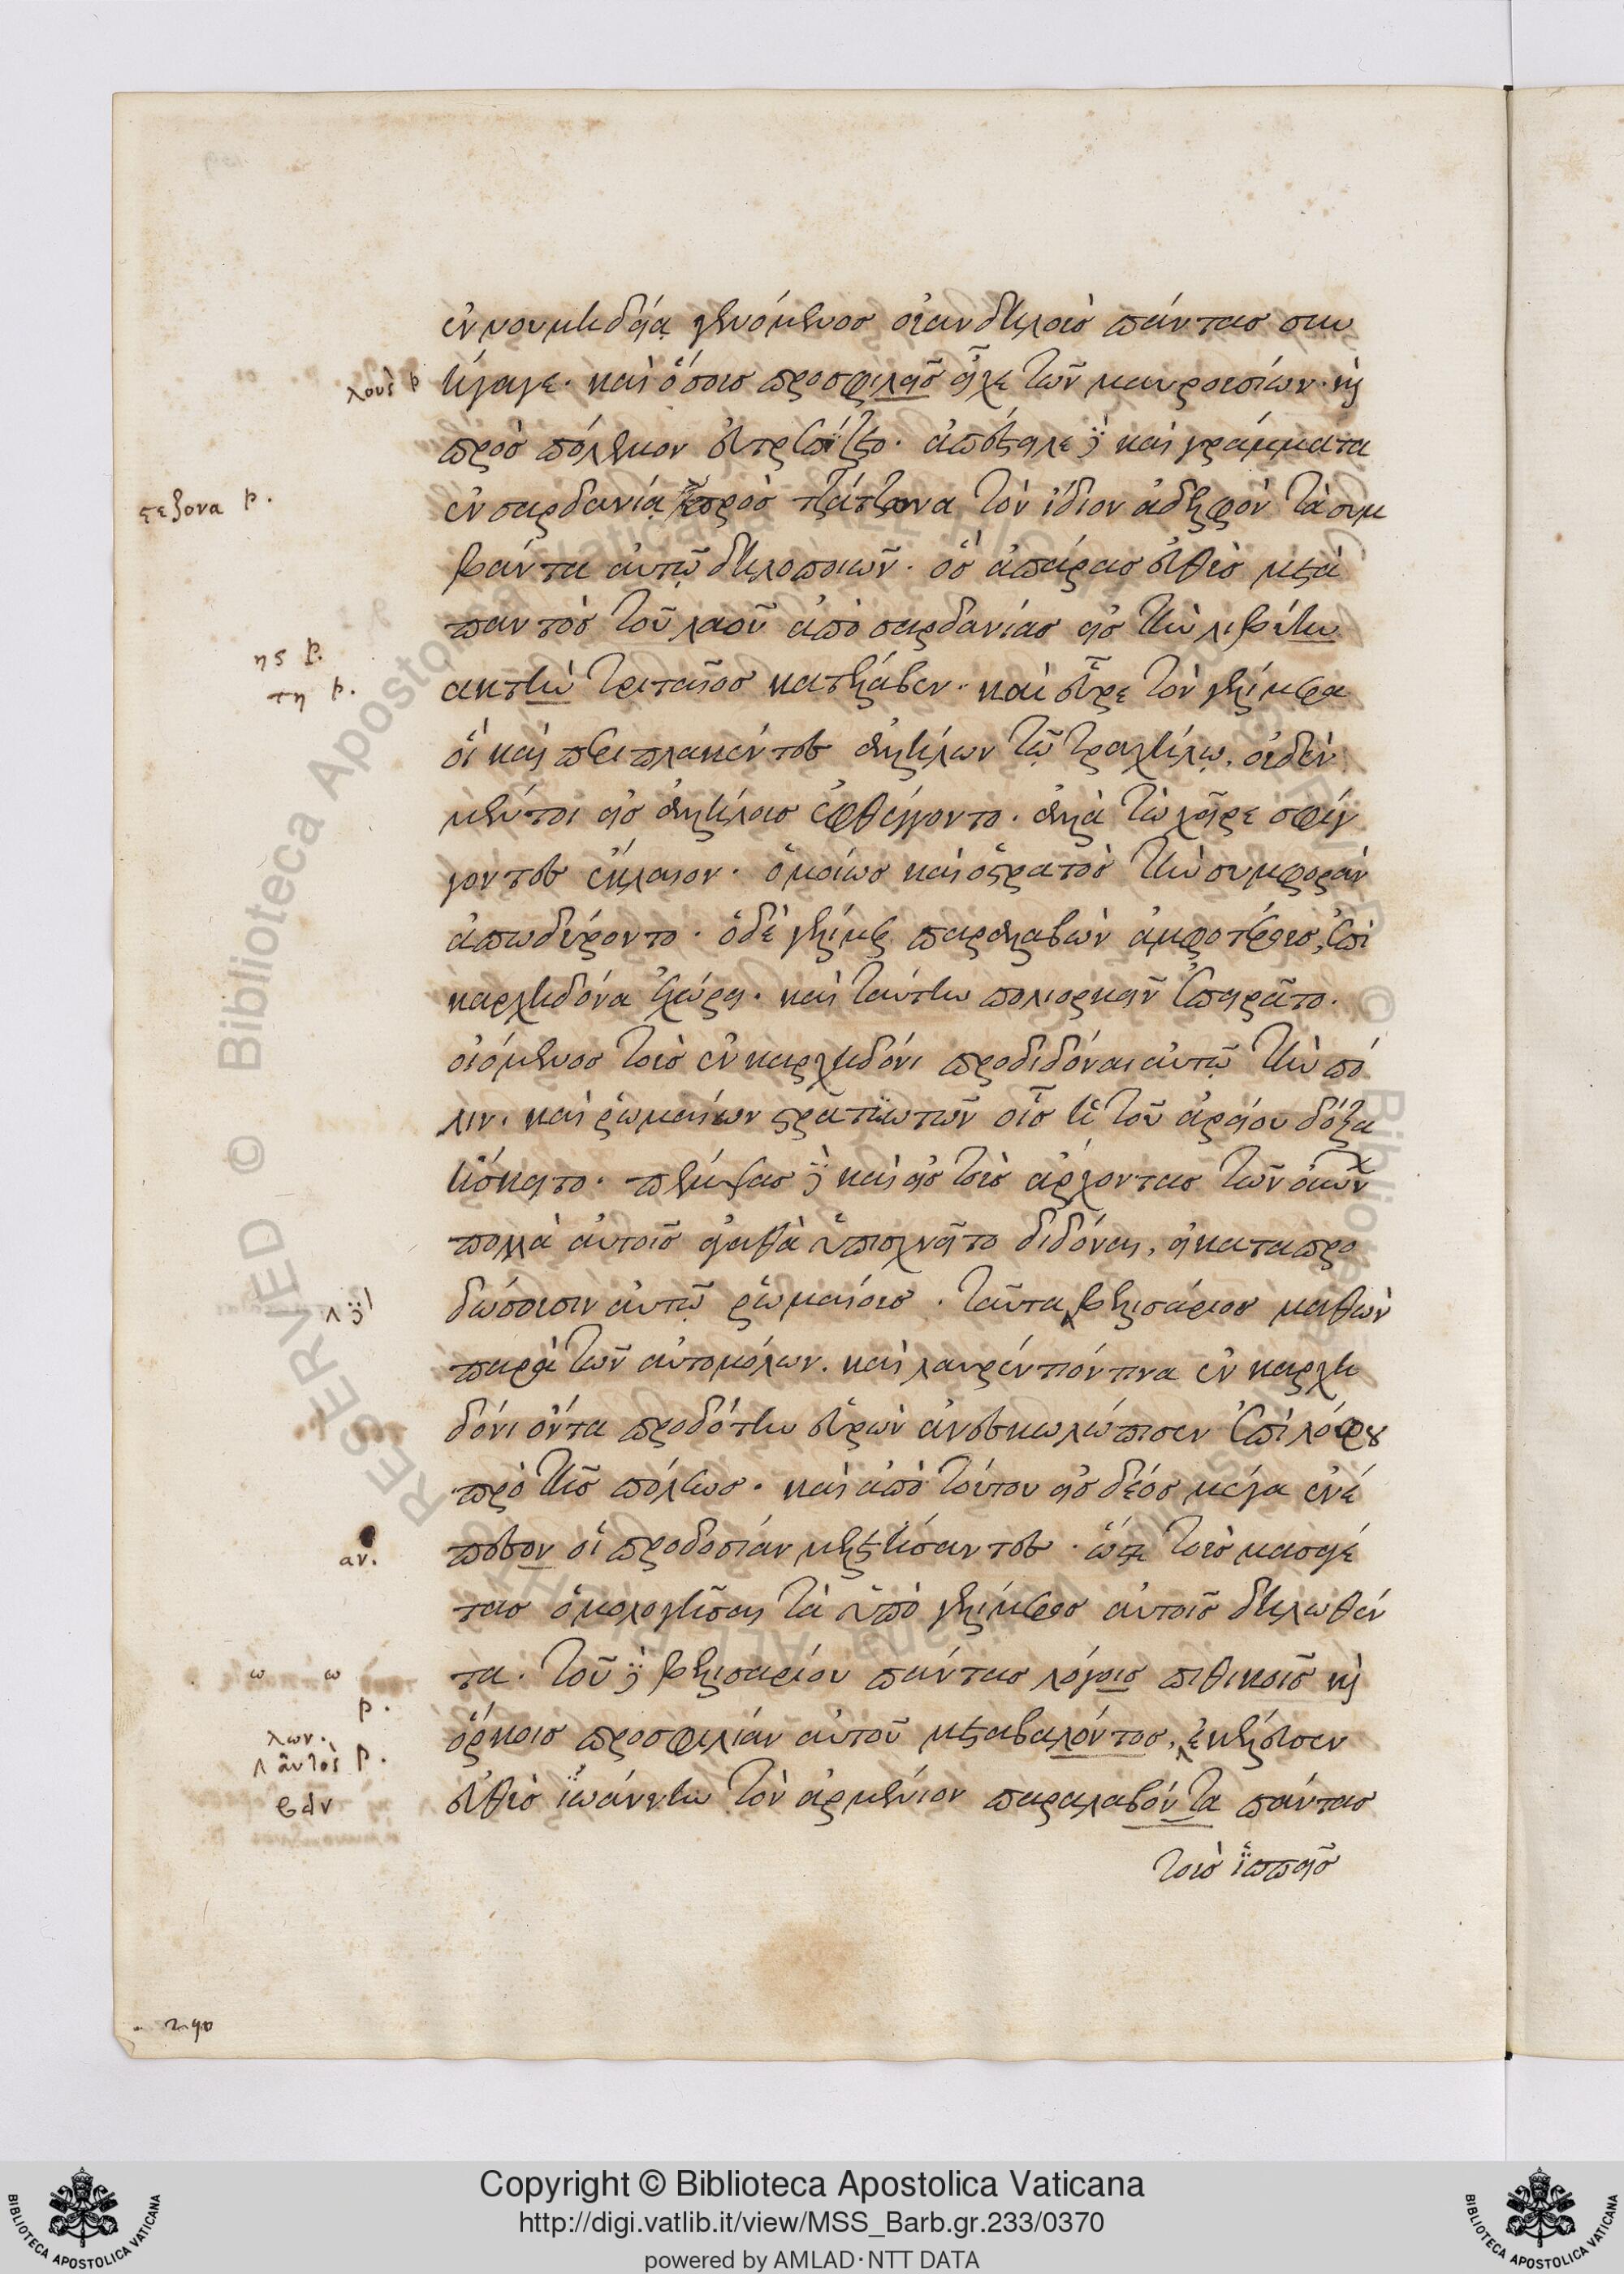 ἐν νουμηδεία γενόμενος οὐανδήλους πάντας συν
ήγαγε. καὶ ὅσους προσφιλεῖς εἶχε τῶν μαυρουσίων. καὶ
λους
πρὸς πόλεμον εὐτρεπίζετο. ἀπέστειλε δὲ καὶ γράμματα
ἐν σαρδανία πρὸς τζάτζωνα τὸν ἴδιον ἀδελφὸν τὰ συμ
βάντα αὐτῷ δηλοποιῶν. ὃς ἀπάρας εὐθὺς μετὰ
παντὸς τοῦ λαοῦ ἀπὸ σαρδανίας εἰς τὴν λιβύην
ης
ακτὴν τριταῖος κατέλαβεν. καὶ εὗρε τὸν γελίμερα
τη
οἳ καὶ περιπλακέντες ἀλλήλων τῷ τραχήλῳ, οὐδὲν
μέντοι εἰς ἀλλήλους ἐφθέγγοντο. ἀλλὰ τὼ χεῖρε σφίγ
γοντες ἔκλαιον. ὁμοίως καὶ ὁ στρατὸς τὴν συμφορὰν
ἀπωδύροντο. ὁ δὲ γελίμερ παραλαβὼν ἀμφοτέρους, ἐπὶ
καρχηδόνα ἐχώρει. καὶ ταύτην πολιορκεῖν ἐπειρᾶτο.
οἰόμενος τοὺς ἐν καρχηδόνι προδιδόναι αὐτῷ τὴν πό
λιν. καὶ ῥωμαίων στρατιωτῶν οἷς ἡ τοῦ ἀρείου δόξα
ἤσκητο. πέμψας δὲ καὶ εἰς τοὺς ἄρχοντας τῶν οὔννων
πολλὰ αὐτοῖς ἀγαθὰ ὑπισχνεῖτο διδόναι, εἰ καταπρο
δώσουσιν αὐτῷ ῥωμαίους. ταῦτα βελισάριος μαθὼν
λ δὲ
παρὰ τῶν αὐτομόλων. καὶ λαυρέντιόν τινα ἐν καρχη
δόνι ὄντα προδότην εὑρὼν ἀνεσκωλώπισεν ἐπὶ λόφου
πρὸ τῆς πόλεως. καὶ ἀπὸ τούτου εἰς δέος μέγα ἐνέ
πεσον οἱ προδοσίαν μελετήσαντες. ὥστε τοὺς μασαγέ
αν.
τας ὁμολογῆσαι τὰ ὑπὸ γελίμερος αὐτοῖς δηλωθέν
τα. τοῦ δὲ βελισαρίου πάντας λόγοις πιθικοῖς καὶ
ω ω
ὅρκοις προσφιλίαν αὐτοῦ μεταβαλόντος, ἐκέλευσεν
λων.
λ αὐτὸς
εὐθὺς ἰωάννην τὸν ἀρμένιον παραλαβόντα πάντας
βὰν
τοὺς ἱππεῖς
RESERVED © Biblioteca Apostolica Vaticana
Copyright © Biblioteca Apostolica Vaticana
http://digi.vatlib.it/view/MSS_Barb.gr.233/0370
powered by AMLAD·NTT DATA
BIBLIOTECA APOSTOLICA VATICANA
BIBLIOTECA APOSTOLICA VATICANA